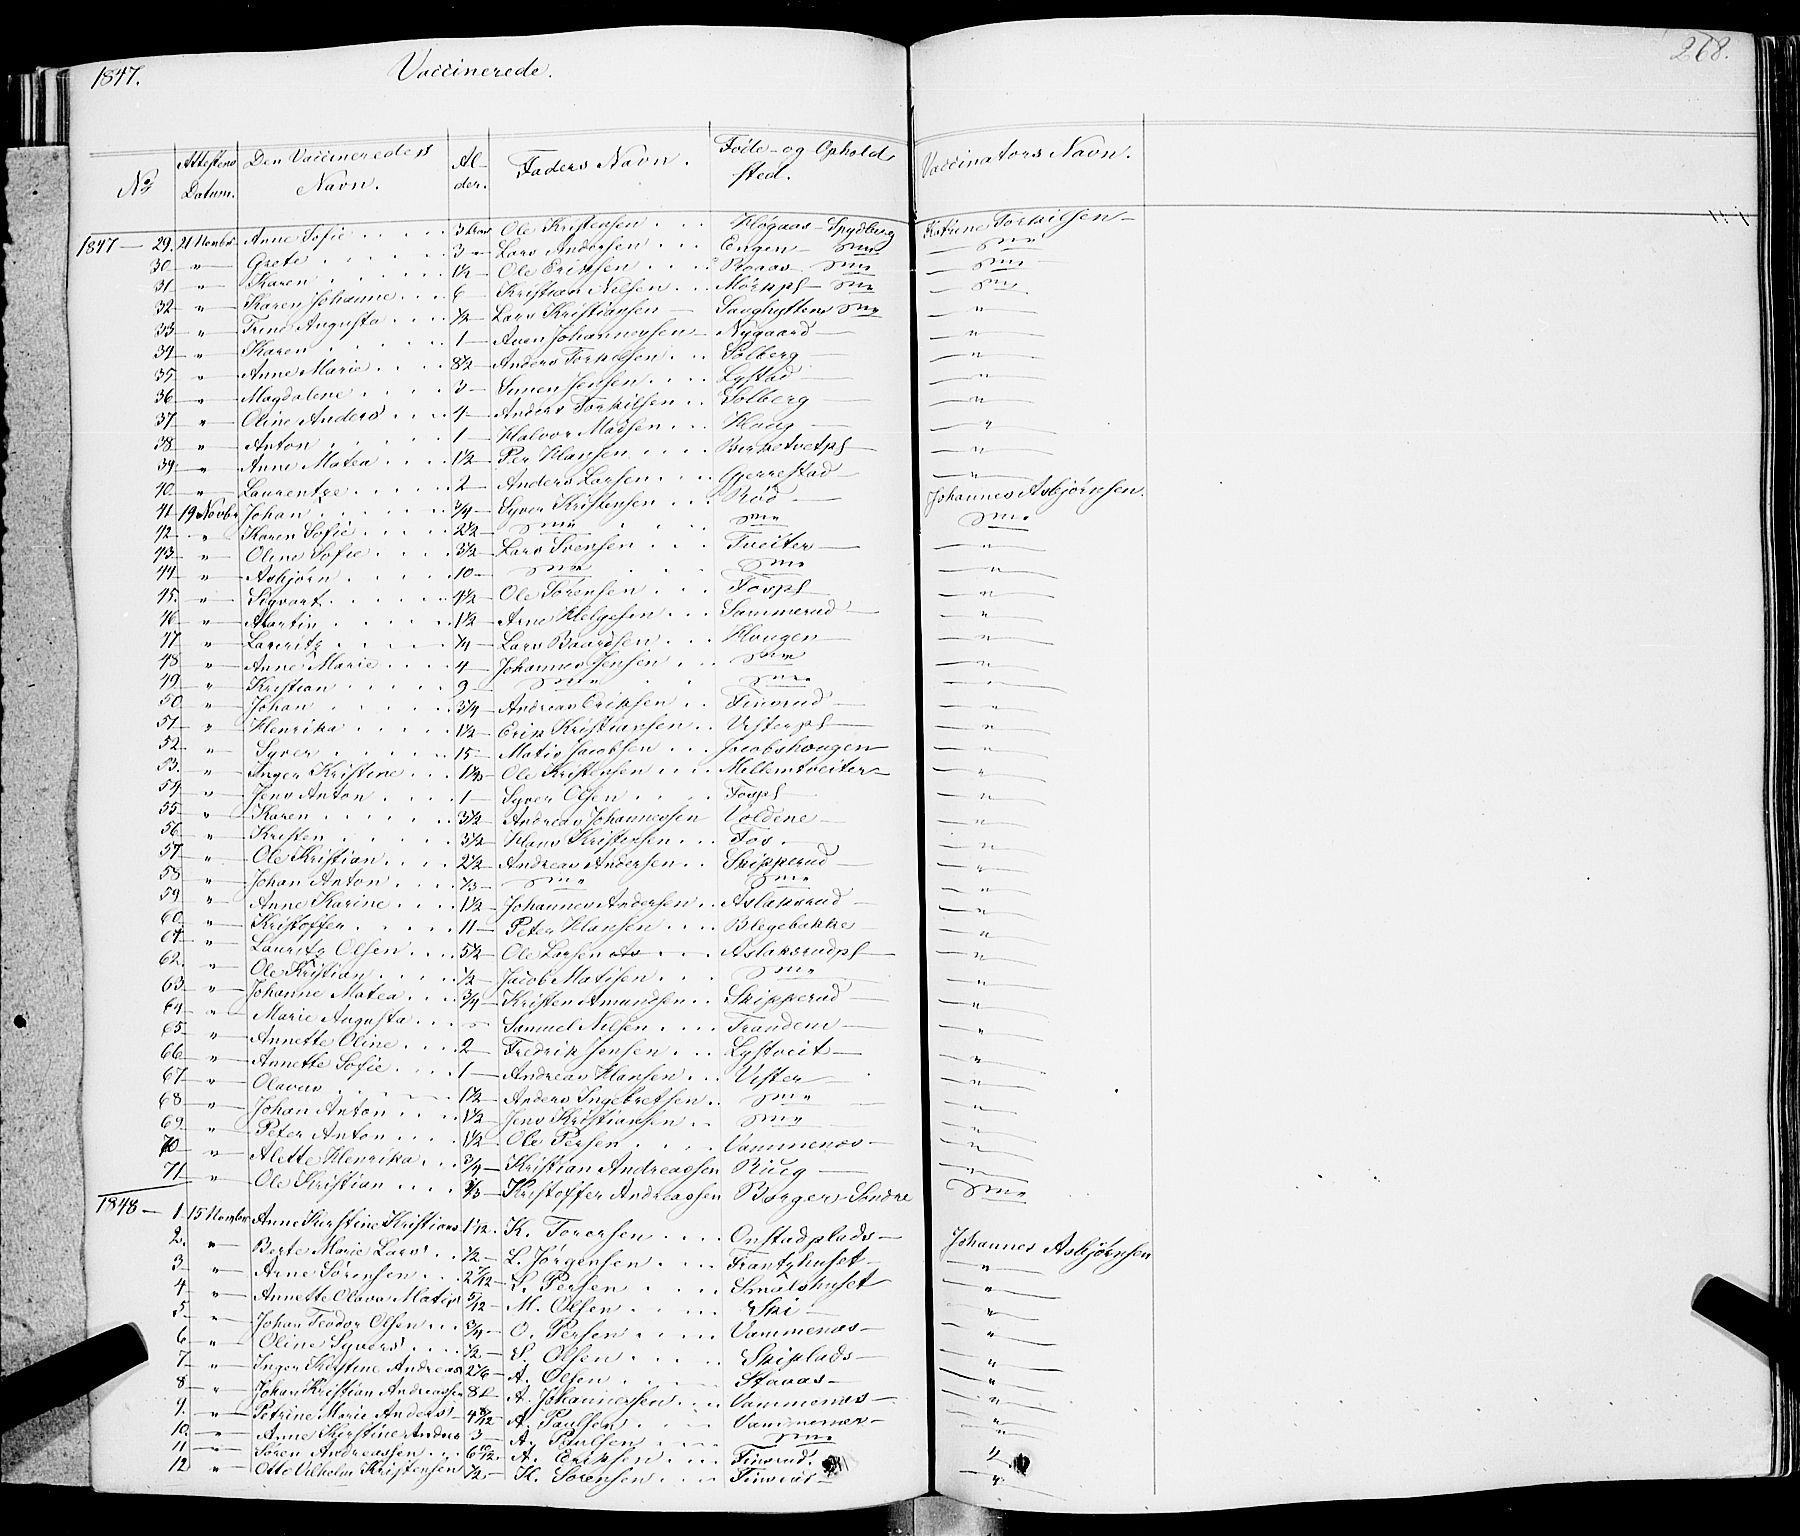 1847. Vaccinerede. 268.
No Attestens Datum. Den Vaccineredes Navn. Alder. Faders Navn. Føde- og Opholdssted. Vaccinators Navn.
1847 — 29. 21 Novbr Anne Sofie 3 Ole Kristensen Høgaas - Spydberg Torkilsen
30 " Grete 3 Lars Andersen Engen
31 " Karen 1½ Ole Eriksen
32 " Karen Johanne 6 Kristian Nilsen
33 " Trine Augusta ½ Lars Kristiansen
34 " Karen 1 Aven Johannessen Nygaard
35 " Anne Marie 8½ Anders Torkilsen Solberg
36 " Magdalene 3 Simen Jensen Lystad
37 " Oline Anders 4 Anders Torkilsen Solberg
38 " Anton 1 Halvor Madsen Haug
39 " Anne Matea 1½ Per Hansen
40 " Laurentze 2 Anders Larsen Gjerrestad
41 19 Novbr Johan ¾ Syver Kristensen Röd Johannes Asbjørnsen
42 " Karen Sofie 2½
43 " Oline Sofie 3½ Lars Svensen Tveiter
44 " Asbjørn 10
45. " Sigvart 4½ Ole Sørensen Fosspl
46 " Martin 1½ Arne Helgesen Sammerud
47 " Lauritz ¼ Lars Baardsen Haugen
48 " Anne Marie 4 Johannes Jensen
49 " Kristian 9
50 " Johan ¾ Andreas Eriksen Finsrud
51 " Henrika 1½ Erik Kristiansen Vesterpl
52 " Syver 15 Matis Jacobsen Jacobshaugen
53. " Inger Kristine Ole Kristensen Mellemtveiter
54 " Jens Anton 1 Syver Olsen Fosspl
55 " Karen 3½ Andreas Johannessen Voldene
56 " Kristen 3½ Hans Kristensen Fos
57 " Ole Kristian 2½ Andreas Andersen Skipperud
58 " Johan Anton ⅓
59 " Anne Karine 1½ Johannes Andersen Aslaksrud
60 " Kristoffer 11 Peter Hansen Blegebakke
61 " Lauritz Olsen 5½ Ole Larsen Aslaksrudpl
62. " Ole Kristian ½ Jacob Matisen
63 " Johanne Matea ¾ Kristen Amundsen Skipperud
64 " Marie Augusta " Samuel Nilsen Trandem
65 " Annette Oline 2 Fredrik Jensen Lystveit
66 " Annette Sofie 1 Andreas Hansen Vister
67 " Olavus 1½ Anders Ingebretsen
68 " Johan Anton 1½ Jens Kristiansen
69 " Peter Anton 1½ Ole Persen Vammenæs
70 " Alette Henrika ¾ Kristian Andreassen
71 " Ole Kristian ⅔ Kristoffer Andreassen Borger Søndre
1848 — 1 15 Novbr Anne Kerstine Kristians K. Torersen Onstadplads Johannes Asbjørnsen
2. " Berte Marie Lars ½ L. Jørgensen Frantzhuset
3 " Arne Sörensen 2 7/12 S. Persen Smålshuset
4 " Annette Olava Matis 5/12 M. Olsen Ski
5 " Johan Teodor Olsen ¾ O. Persen Vammenæs
6 " Oline Syvers ½ S. Olsen Skiplads
7 " Inger Kirstine Andreas 2 1/6 A. Olsen
8 " Johan Kristian Andreassen A. Johannessen Vammenæs
9. " Petrine Marie Anders A. Paulsen Vammenæs
10. " Anne Kirstine Andrea 3 A. Paulsen
11 " Søren Andreassen A. Eriksen Finsrud.
12 " Otto Vilhelm Kristensen ½ K. Sörensen Finsrud